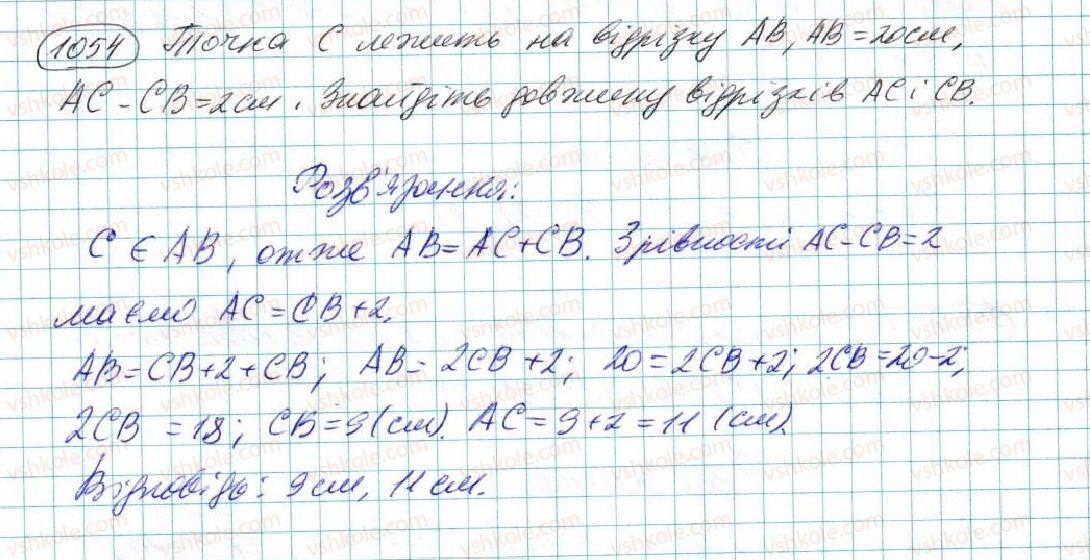 1054 Точка C лежить на відрізку AB, AB = 20 см,
AC - CB = 2 см. Знайдіть довжину відрізків AC і CB.
Розв'язання:
C ∈ AB, отже AB = AC + CB. З рівності AC - CB = 2
маємо AC = CB + 2.
AB = CB + 2 + CB; AB = 2CB + 2; 20 = 2CB + 2; 2CB = 20 - 2;
2CB = 18; CB = 9 (см). AC = 9 + 2 = 11 (см)
Відповідь: 9 см, 11 см.